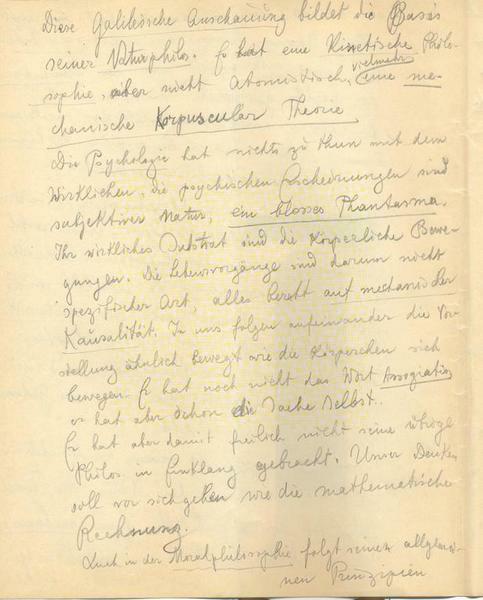 Diese Galileische Anschauung bildet die Basis
seiner Naturphilos. Er hat eine Kinetische Philo-
sophie, aber nicht Atomistisch, vielmehr eine me-
chanische Korpuscular Theorie
Die Psychologie hat nichts zu thun mit dem
Wirklichen, die psychischen Erscheinungen sind
subjektiver Natur, ein blosses Phantasma.
Ihr wirkliches Substrat sind die Körperliche Bewe-
gungen. Die Lebensvorgänge sind darum nicht
spezifischer Art, alles beruht auf mechanischer
Kausalität. In uns folgen aufeinander die Vor-
stellung ähnlich bewegt wie die Körperchen sich
bewegen. Er hat noch nicht das Wort Assoziation
er hat aber schon die Sache selbst.
Er hat aber damit freilich nicht seine übrige
Philos in Einklang gebracht. Unser Denken
soll vor sich gehen wie die mathematische
Rechnung.
Auch in der Moralphilosophie folgt seinen allgemei-
nen Prinzipien